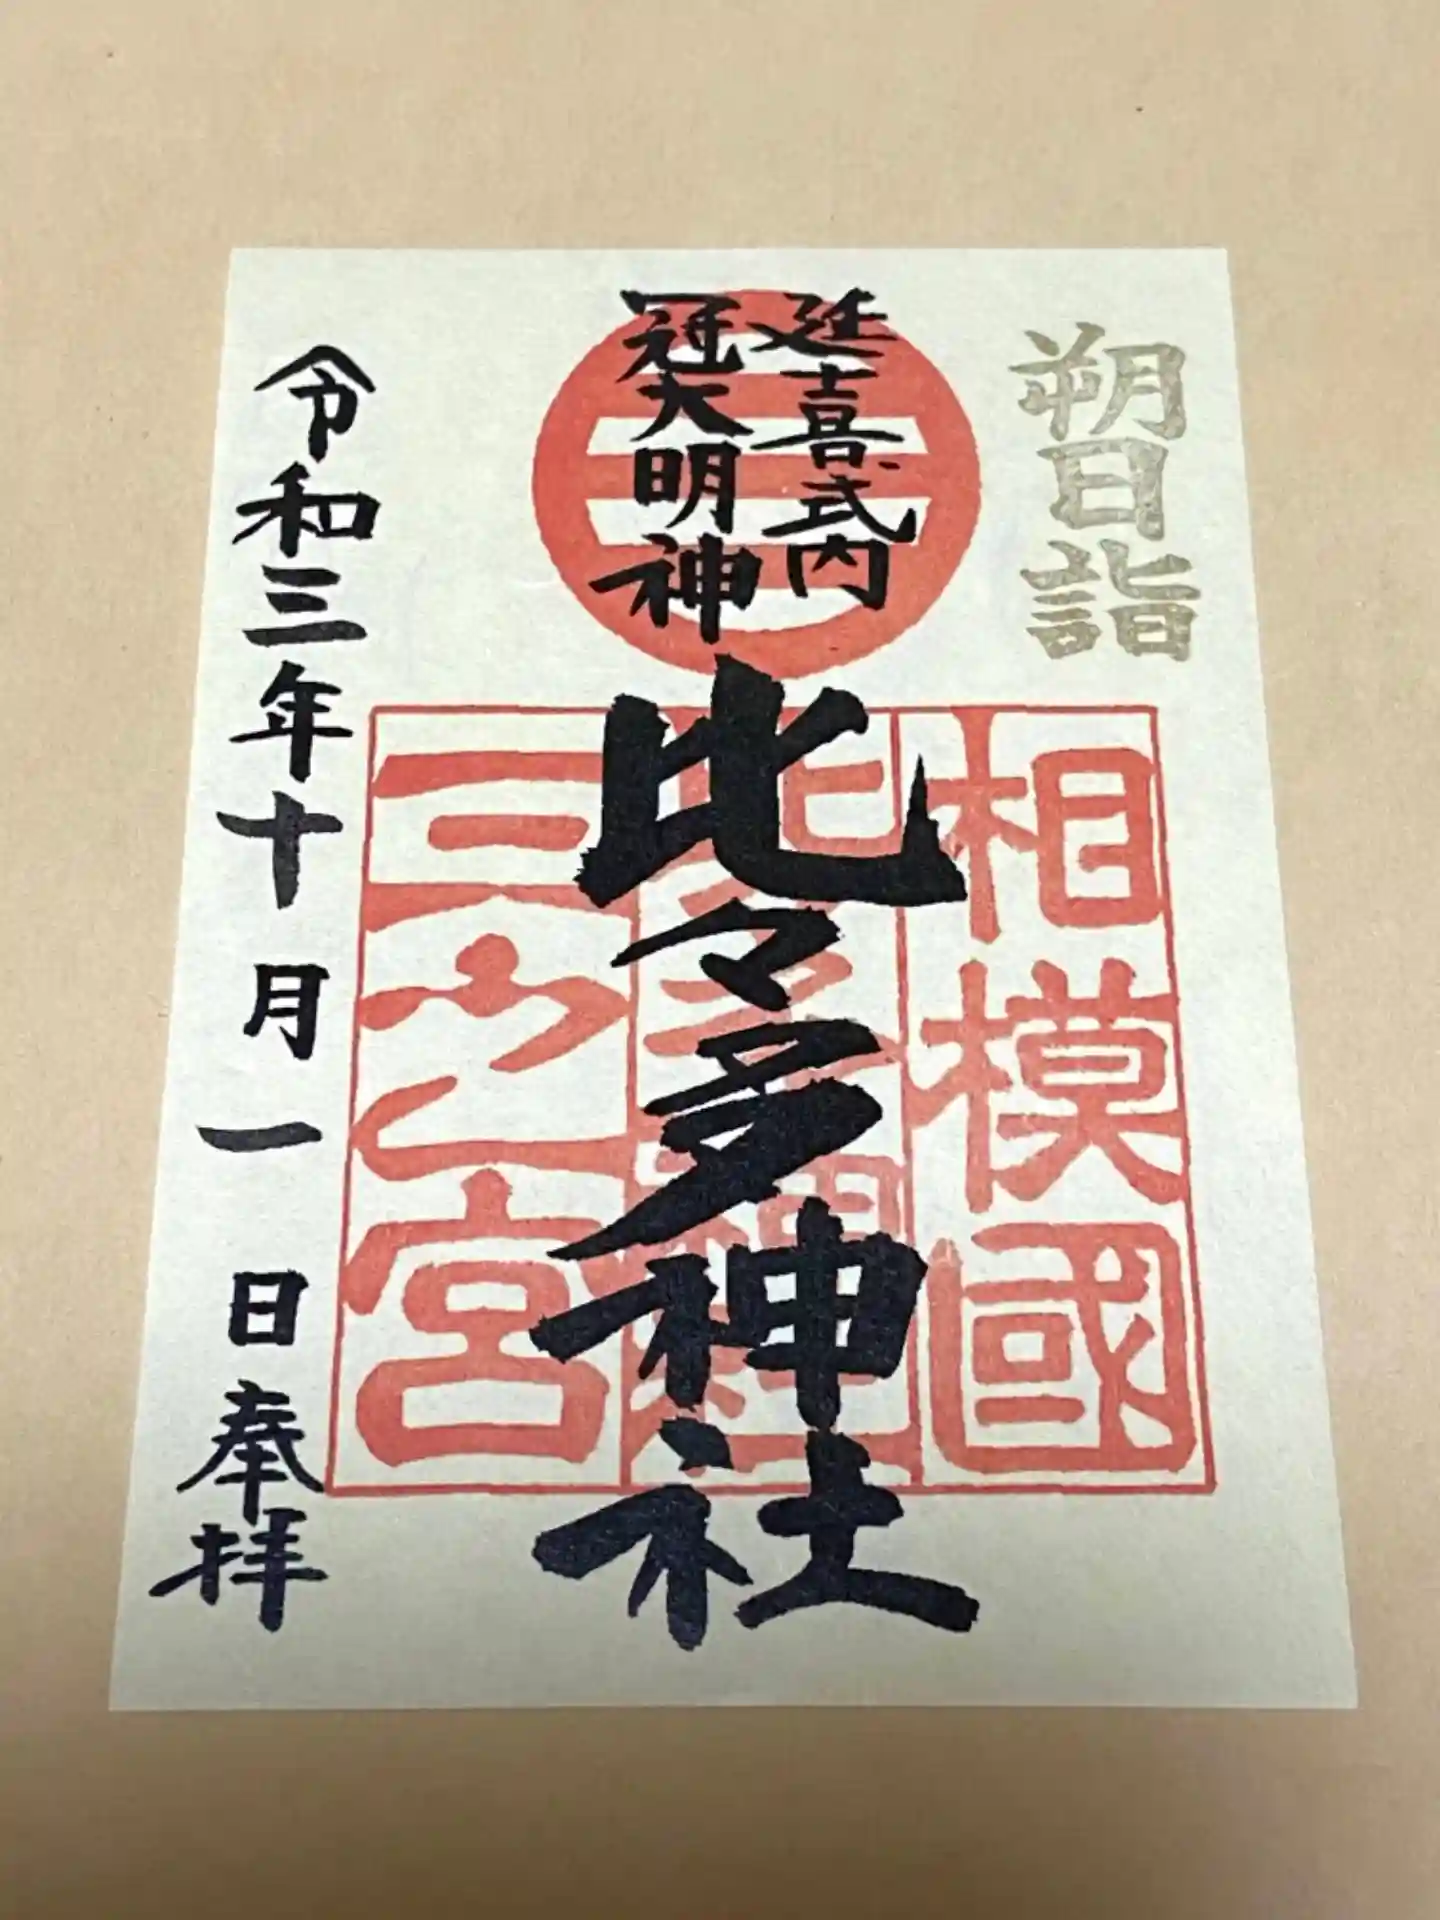 朔日詣
延喜式内
冠大明神
比々多神社
相模國
比多神社
三之宮
令和三年十月一日奉拝